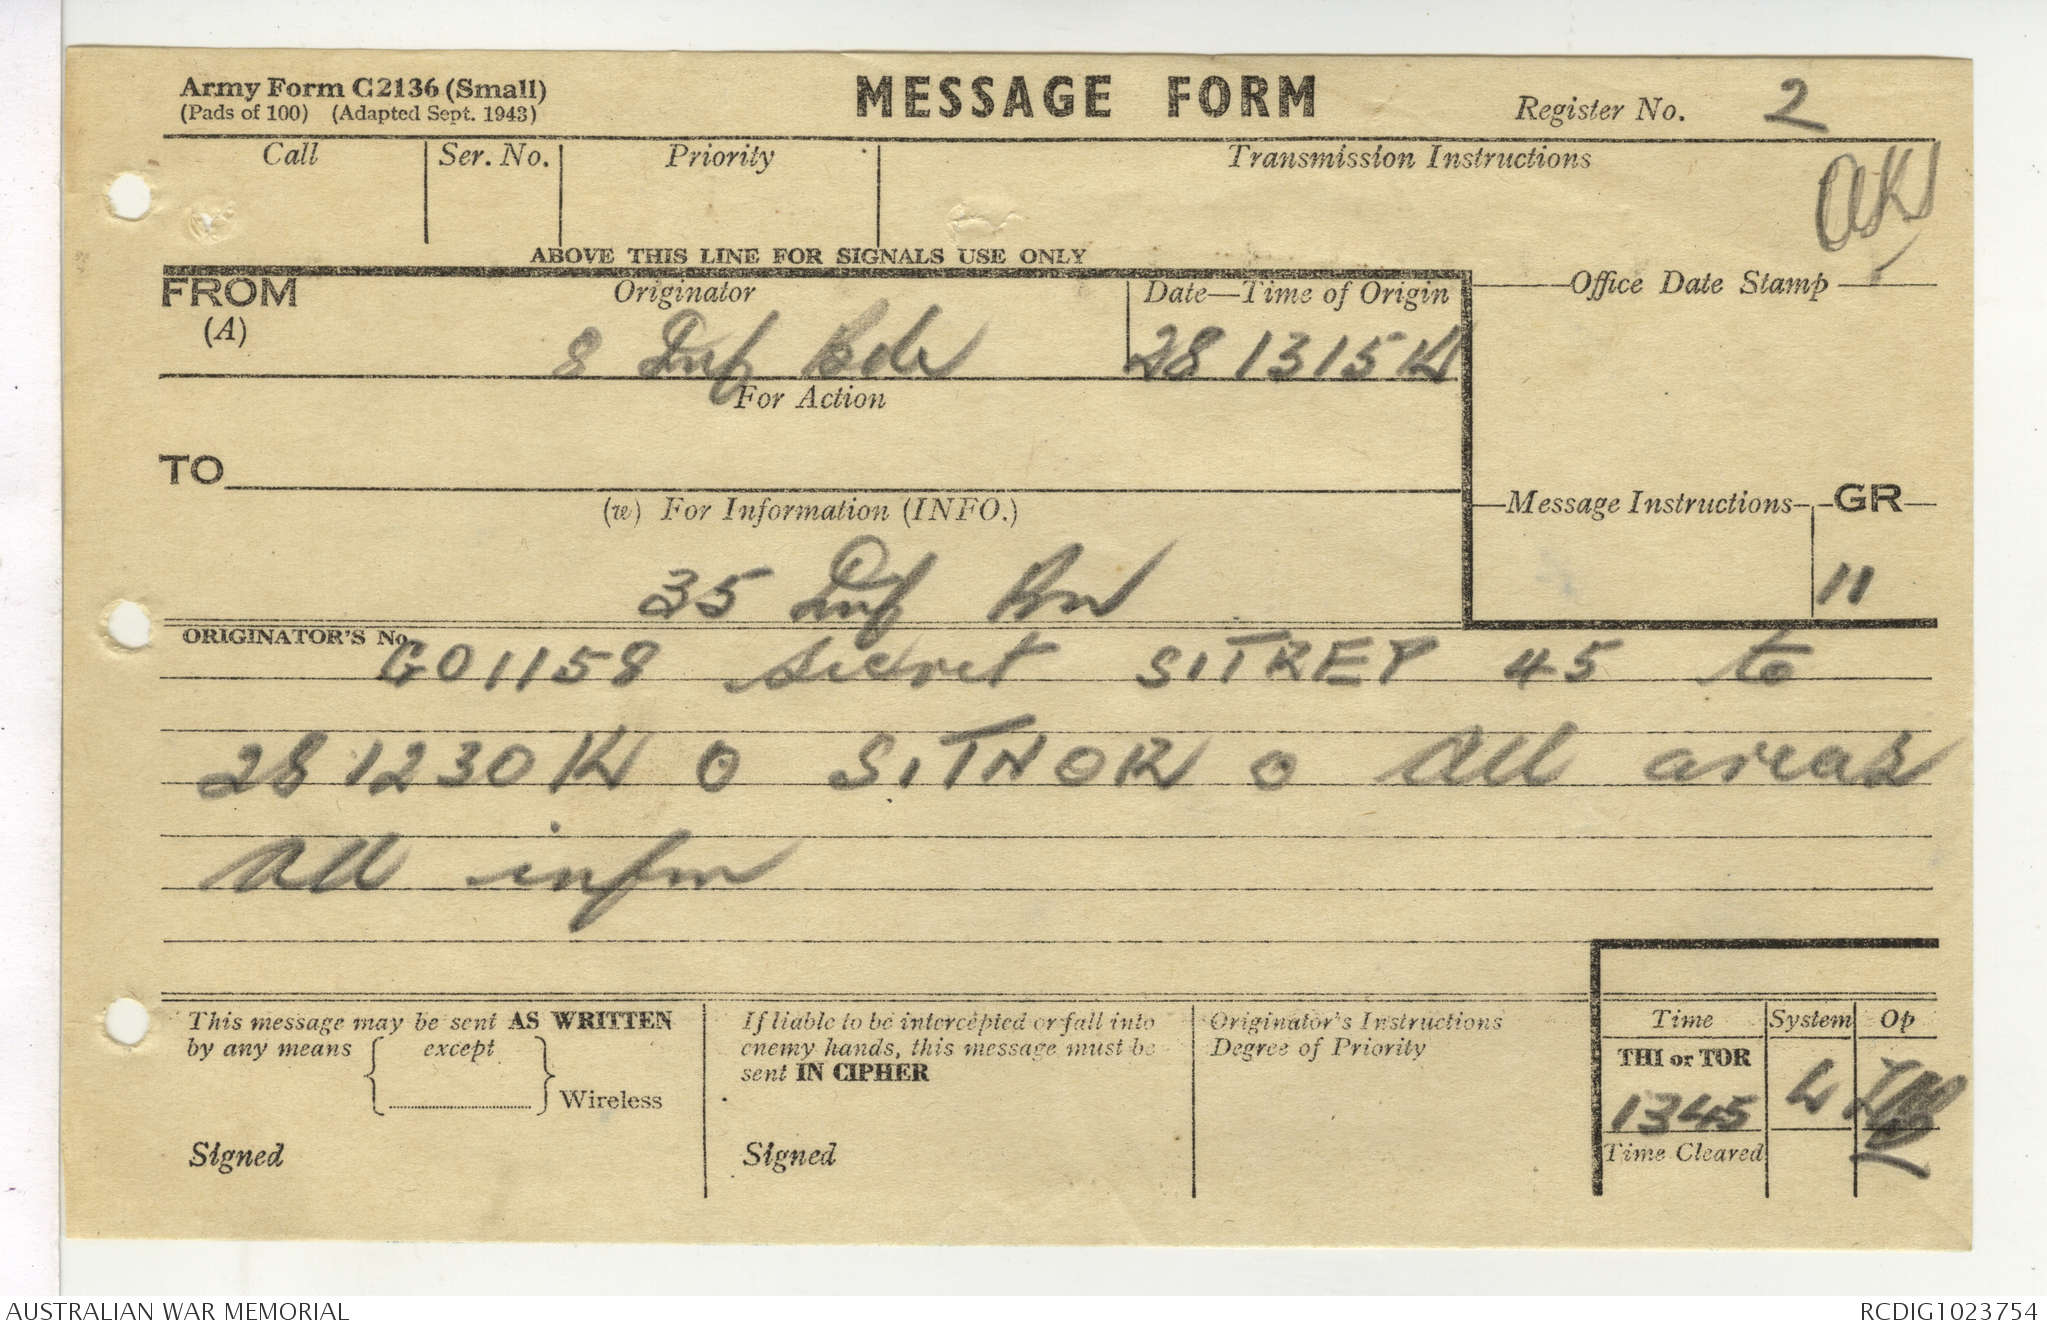 Army Form C2136 (Small)
(Pads of 100) (Adapted Sept. 1943)
MESSAGE FORM
Register No. 2
Call
Ser. No.
Priority
Transmission Instructions
ABOVE THIS LINE FOR SIGNALS USE ONLY
FROM
(A)
Originator
8 Inf Bde
Date—Time of Origin
281315K
Office Date Stamp
For Action
TO
(w) For Information (INFO.)
35 Inf Bn
Message Instructions
GR
11
ORIGINATOR'S No.
GO1158 Secret SITREP 45 to
281230K O SITNOR O All areas
All infm
This message may be sent AS WRITTEN
by any means except
Wireless
Signed
If liable to be intercepted or fall into
enemy hands, this message must be
sent IN CIPHER
Signed
Originator's Instructions
Degree of Priority
Time
System
Op
THI or TOR
1345
Time Cleared
AUSTRALIAN WAR MEMORIAL
RCDIG1023754